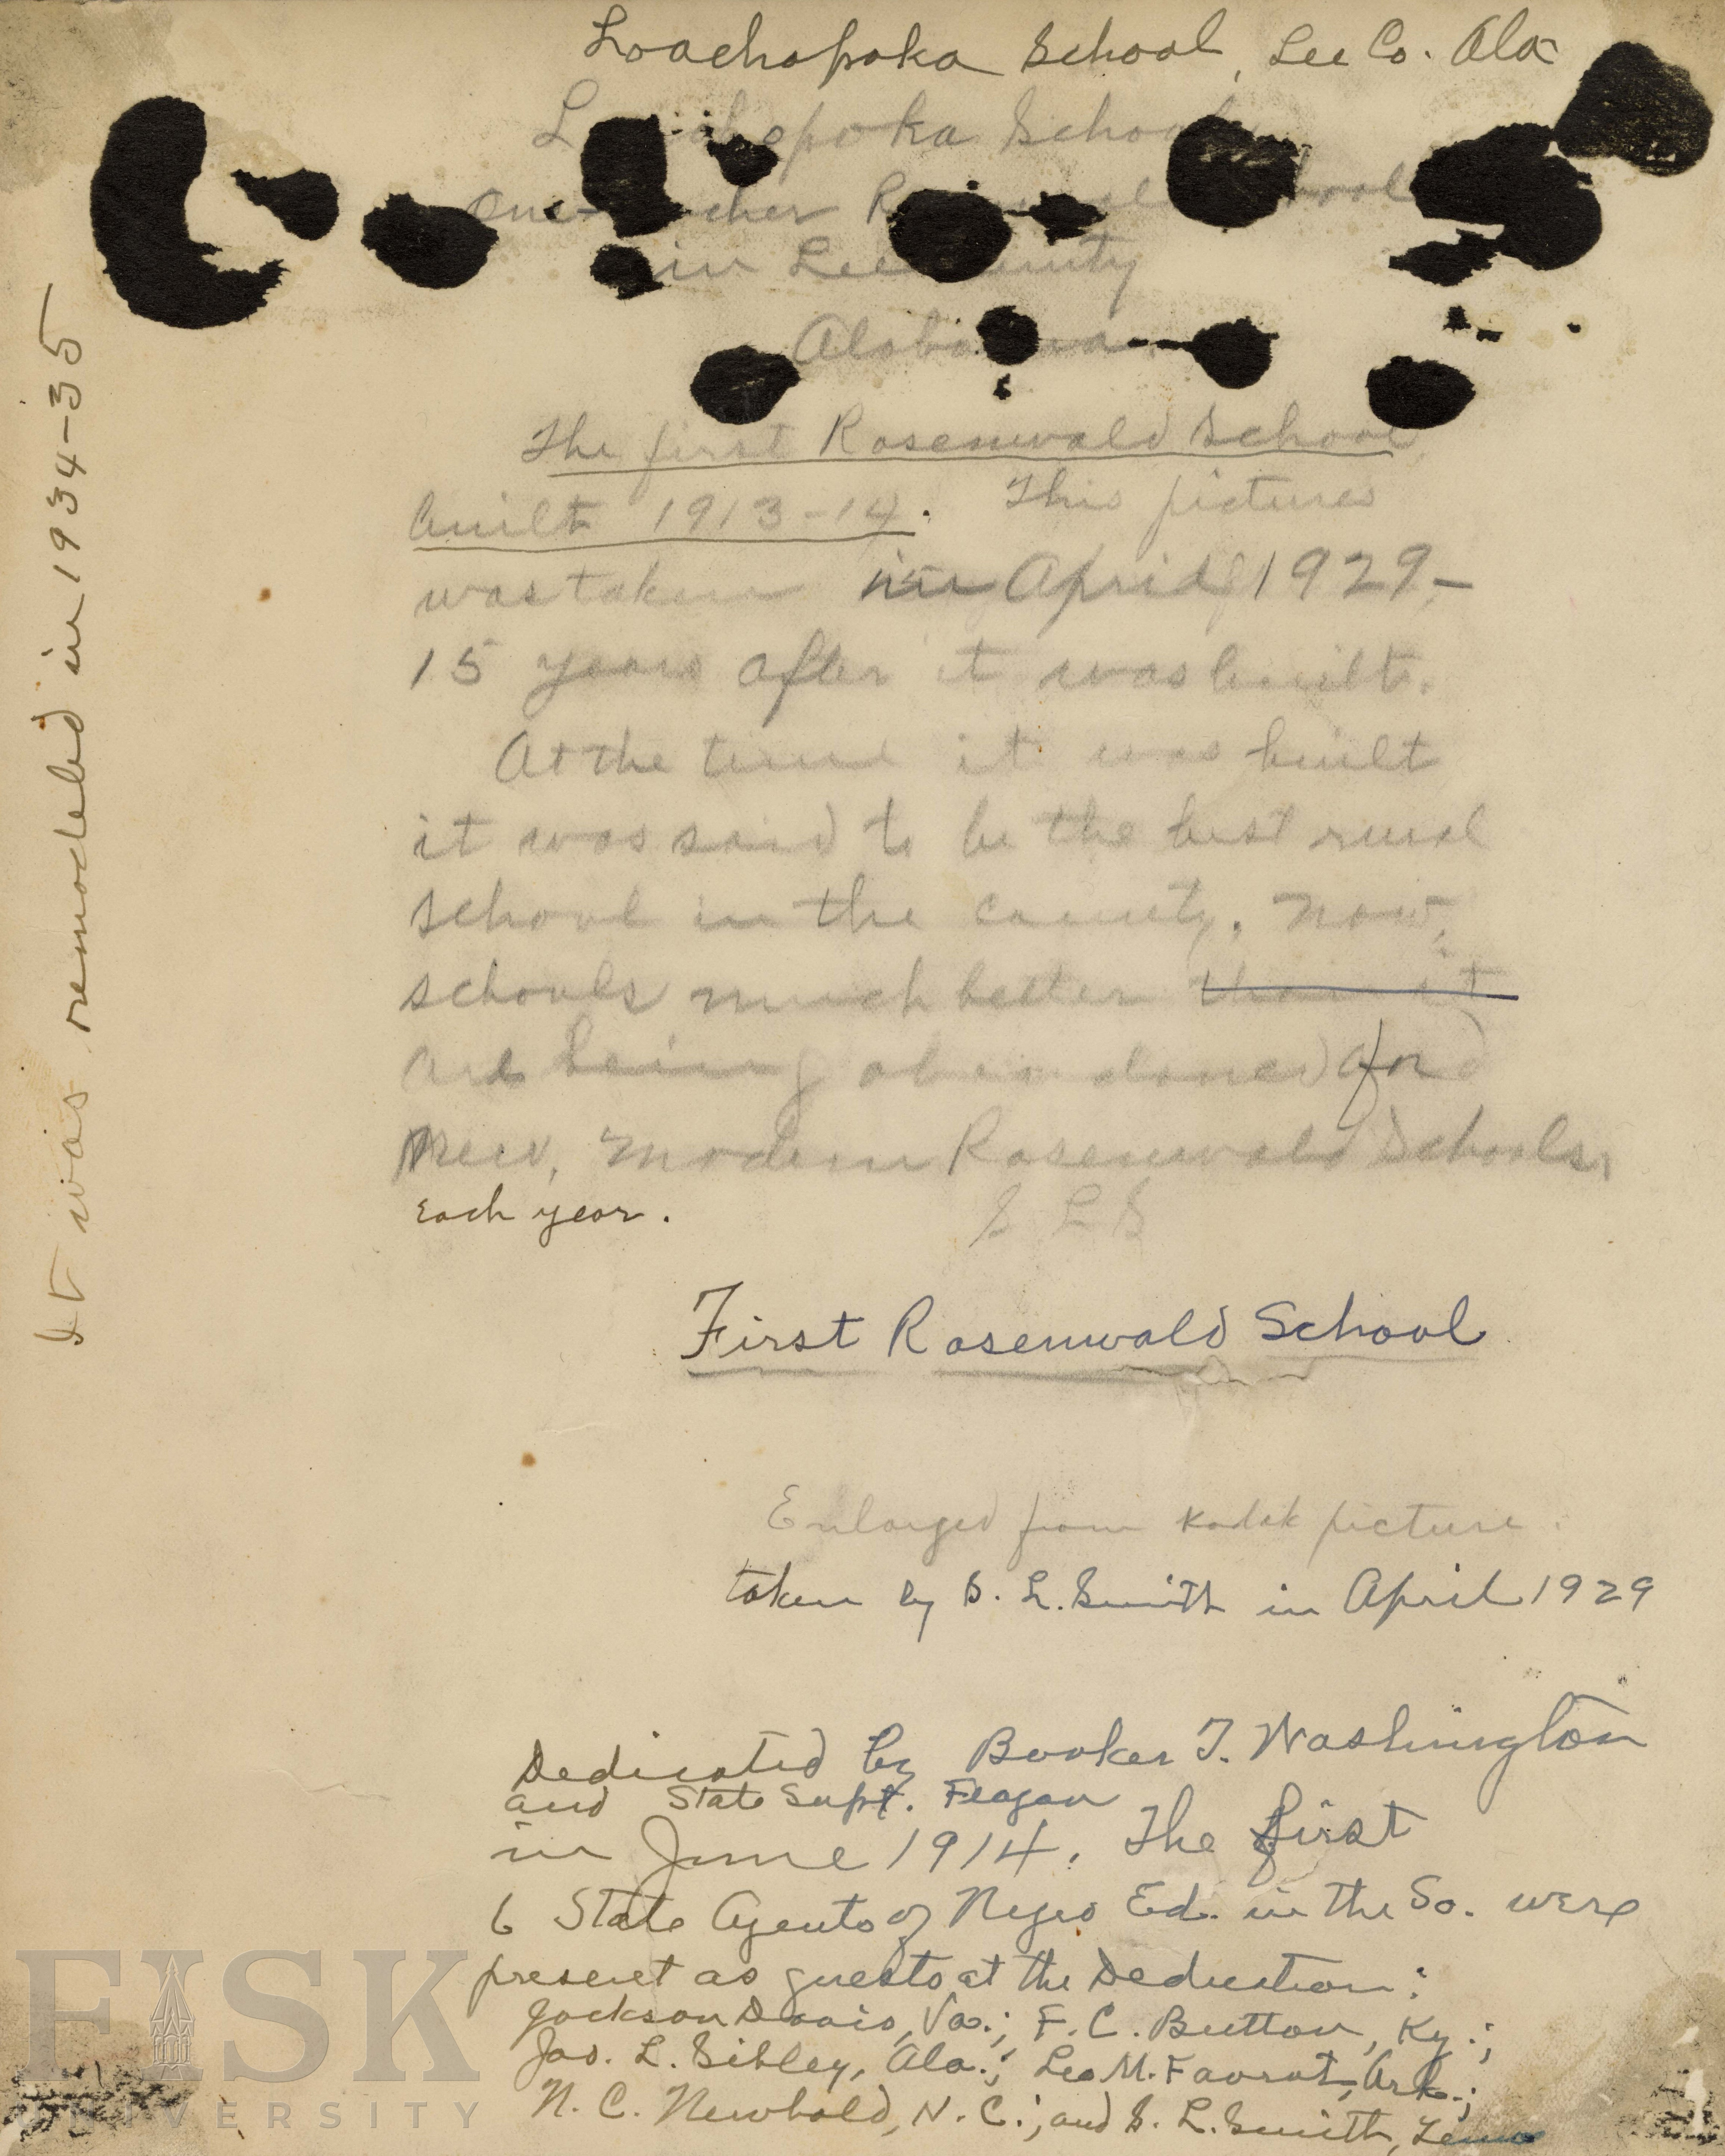 Loachapoka School, Lee Co. Ala
School
in Lee
The first Rosenwald School
built 1913-14. This picture
was taken in April 1929-
15 years after it was built.
At the time it was built
it was said to be the best rural
school in the county. Now,
schools much better than it
are being abandoned for
new, modern Rosenwald Schools,
each year.
S L S
First Rosenwald School
Enlarged from Kodak picture.
taken by S. L. Smith in April 1929
Dedicated by Booker T. Washington
and State Supt. Feagan
in June 1914. The first
6 State Agents of Negro Ed. in the So. were
present as guests at the Dedication:
Jackson Davis, Va.; F. C. Button, Ky.;
Jas. L. Sibley, Ala.; Leo M. Favrot, Ark.;
N. C. Newbold, N. C.; and S. L. Smith, Tenn
It was remodeled in 1934-35
FISK
UNIVERSITY